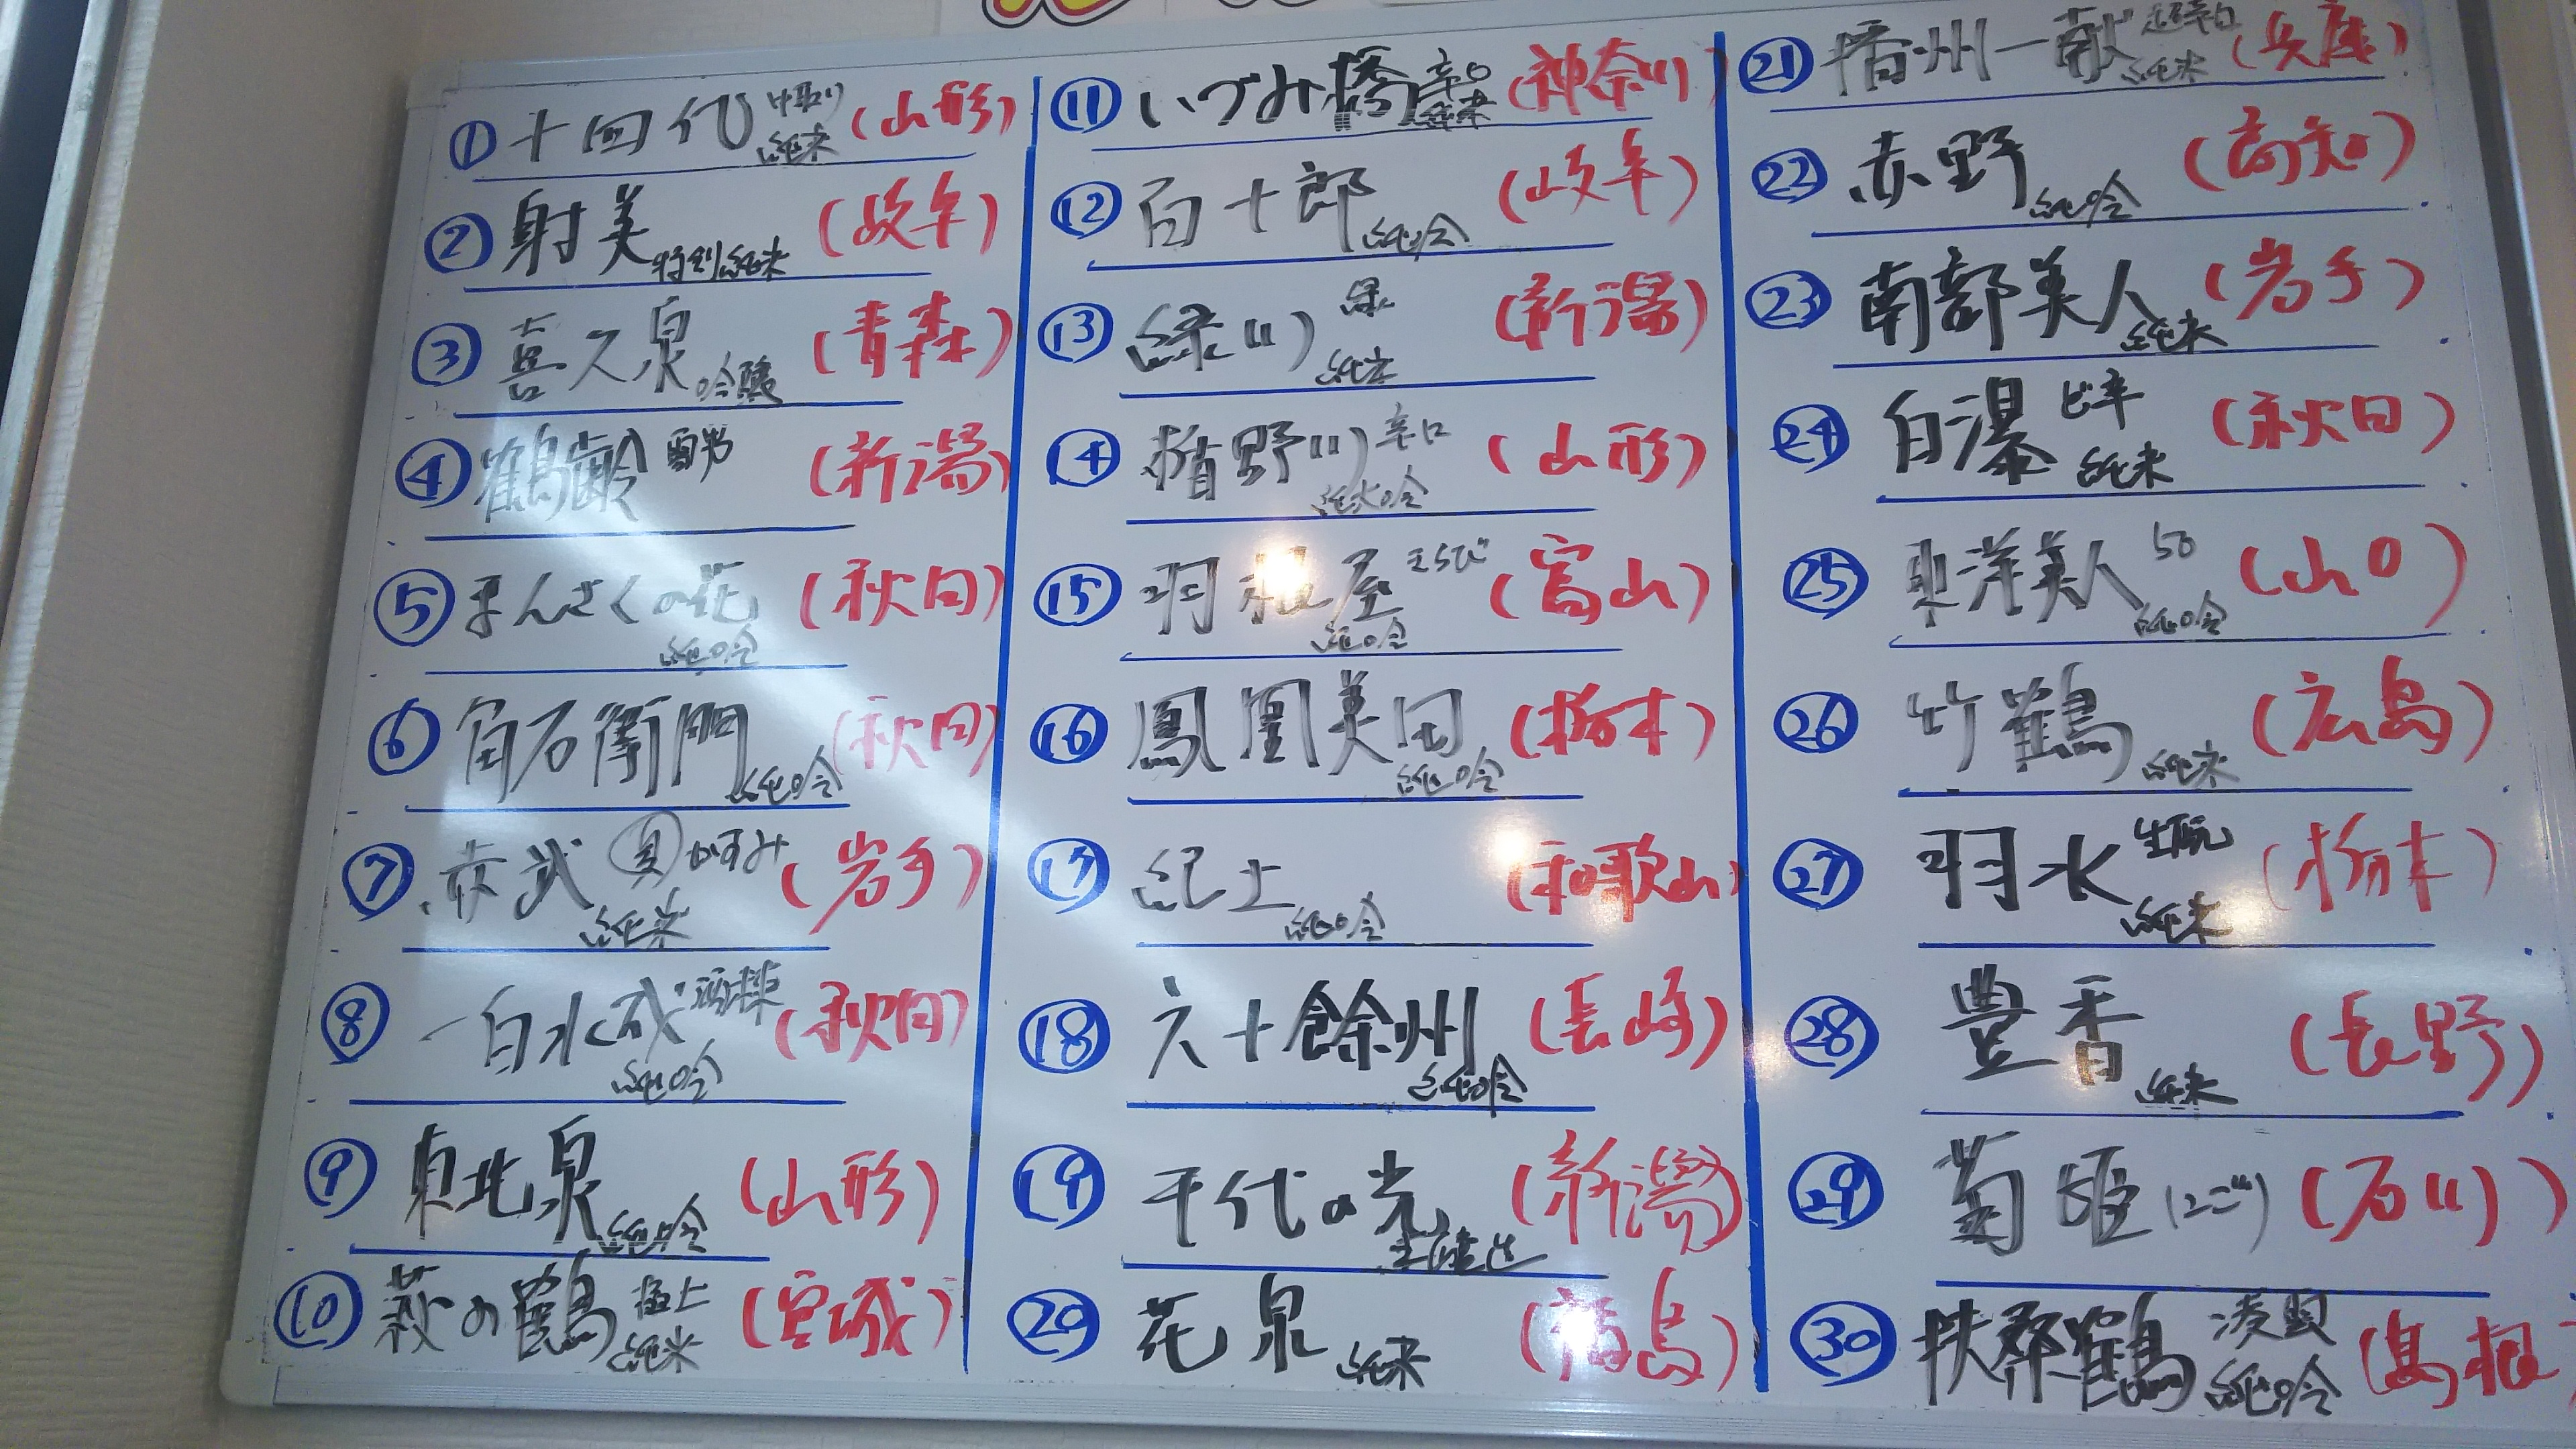 ① 十四代 中取り 純米 (山形)
② 射美 特別純米 (岐阜)
③ 喜久泉 吟醸 (青森)
④ 鶴齢 (新潟)
⑤ まんさくの花 純吟 (秋田)
⑥ 角右衛門 純吟 (秋田)
⑦ 赤武 かすみ 純米 (岩手)
⑧ 一白水成 純吟 (秋田)
⑨ 東北泉 純吟 (山形)
⑩ 萩の鶴 極上 純米 (宮城)
⑪ いづみ橋 辛口 純米 (神奈川)
⑫ 百十郎 純吟 (岐阜)
⑬ 緑川 緑 純米 (新潟)
⑭ 楯野川 辛口 純大吟 (山形)
⑮ 羽根屋 きらび 純吟 (富山)
⑯ 鳳凰美田 純吟 (栃木)
⑰ 紀土 純吟 (和歌山)
⑱ 六十餘州 純吟 (長崎)
⑲ 千代の光 (新潟)
⑳ 花泉 純米 (福島)
㉑ 播州一献 超辛口 純米 (兵庫)
㉒ 赤野 純吟 (高知)
㉓ 南部美人 純米 (岩手)
㉔ 白瀑 ど辛 純米 (秋田)
㉕ 東洋美人 50 純吟 (山口)
㉖ 竹鶴 純米 (広島)
㉗ 羽水 生酛 純米 (栃木)
㉘ 豊香 純米 (長野)
㉙ 菊姫 (にごり) (石川)
㉚ 扶桑鶴 純吟 (島根)